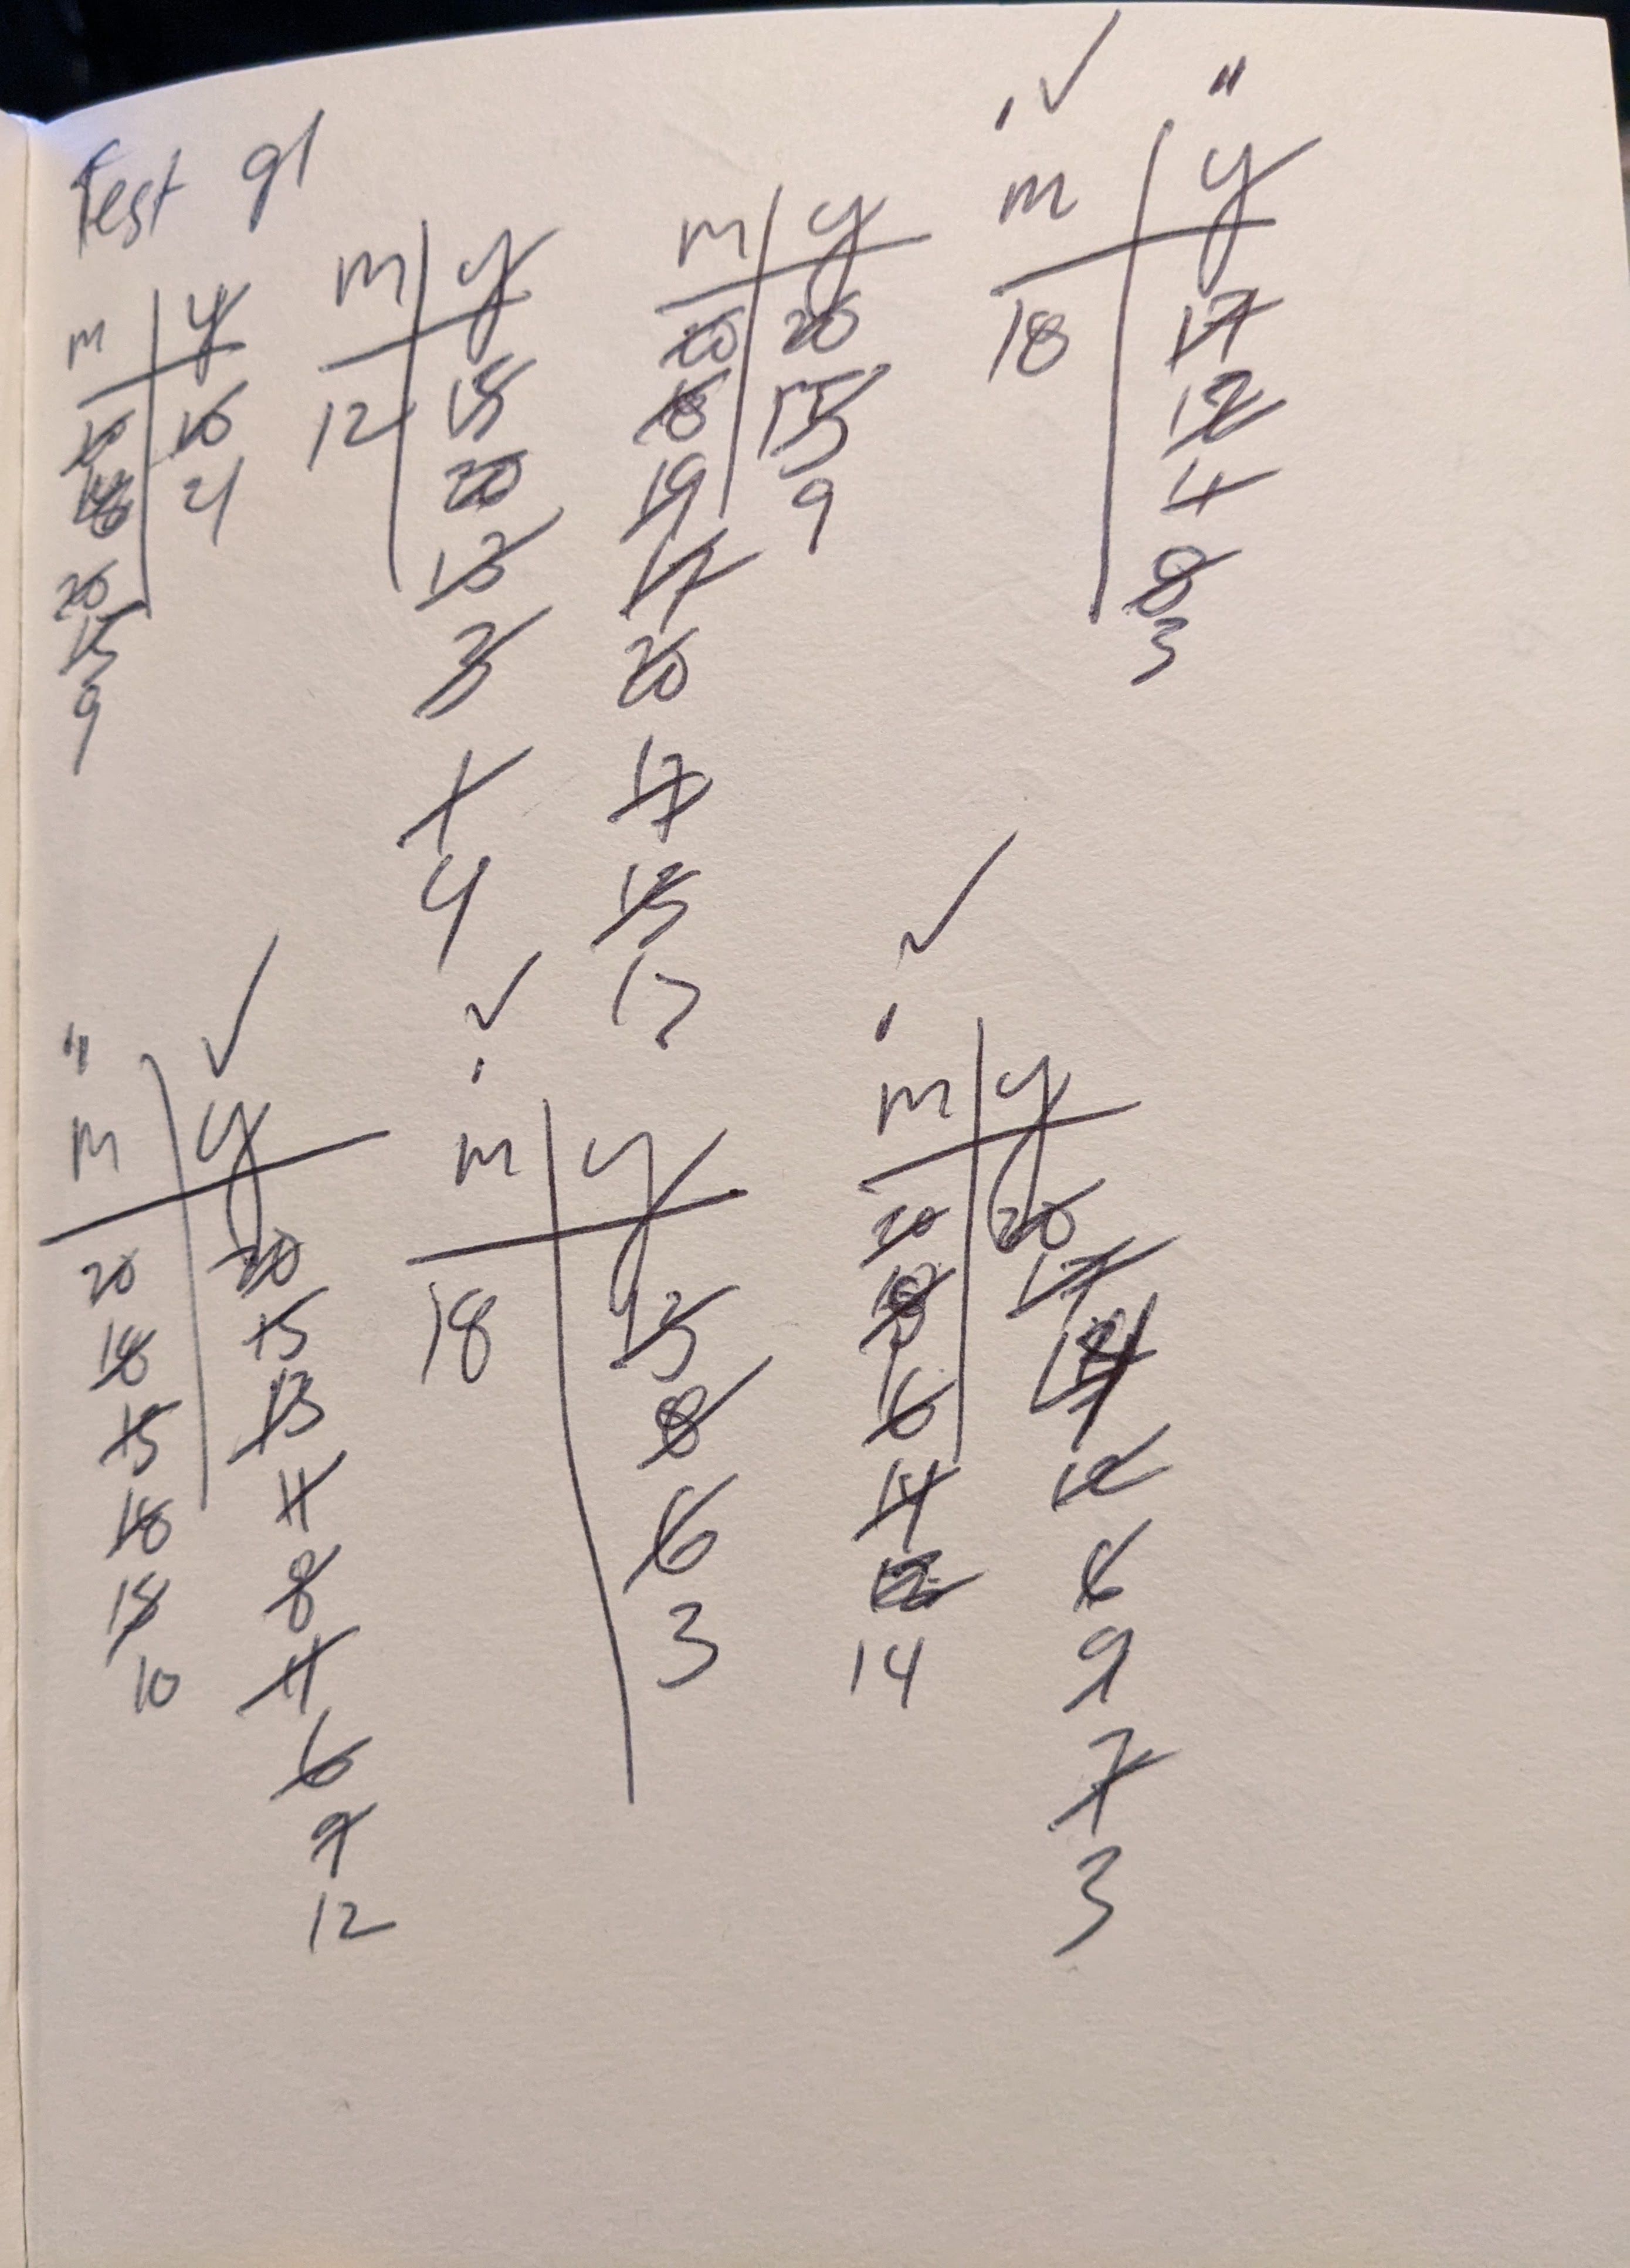 Test g1
m | y
20
15
9
m | y
12
20
3
1
4
m | y
20 20
18 15
19 9
17
20
17
15
17
✓ "
m | y
18 17
12
4
8
3
" ✓
m | y
20 20
18 15
15 13
18 11
15 8
10 11
6
9
12
✓
m | y
18 15
8
6
3
✓
m | y
20 20
18 17
16
14 12
12 6
14 9
7
3